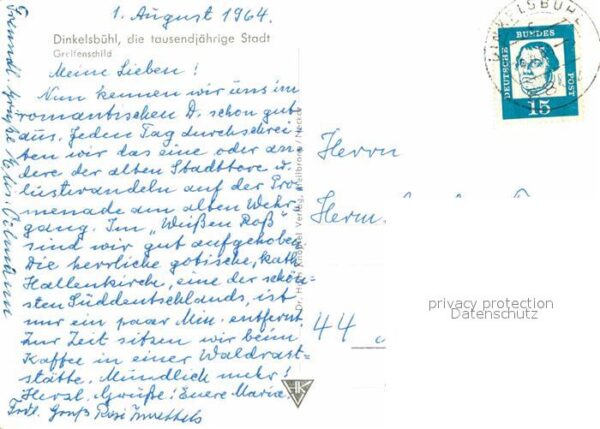 1. August 1964.
Dinkelsbühl, die tausendjährige Stadt
Greifenschild
Meine Lieben!
Nun kennen wir uns im
romantischen D. schon gut
aus. Jeden Tag durchschrei-
ten wir das eine oder an-
dere der alten Stadttore u.
lustwandeln auf der Pro-
menade am alten Wehr-
gang. Im „Weißen Roß“
sind wir gut aufgehoben,
Die herrliche gotische, kath.
Hallenkirch, eine der schön-
sten Süddeutschlands, ist
nur ein paar Min. entfernt
Zur Zeit sitzen wir beim
Kaffee in einer Waldrast-
stätte. Mündlich mehr!
Herzl. Grüße! Euere Maria.
Frdl. Gruß Rosi
Freundl. Grüße
Verlag, Heilbronn/Neckar
DINKELSBÜHL
DEUTSCHE BUNDESPOST
15
Herrn
Herm.
44
privacy protection
Datenschutz